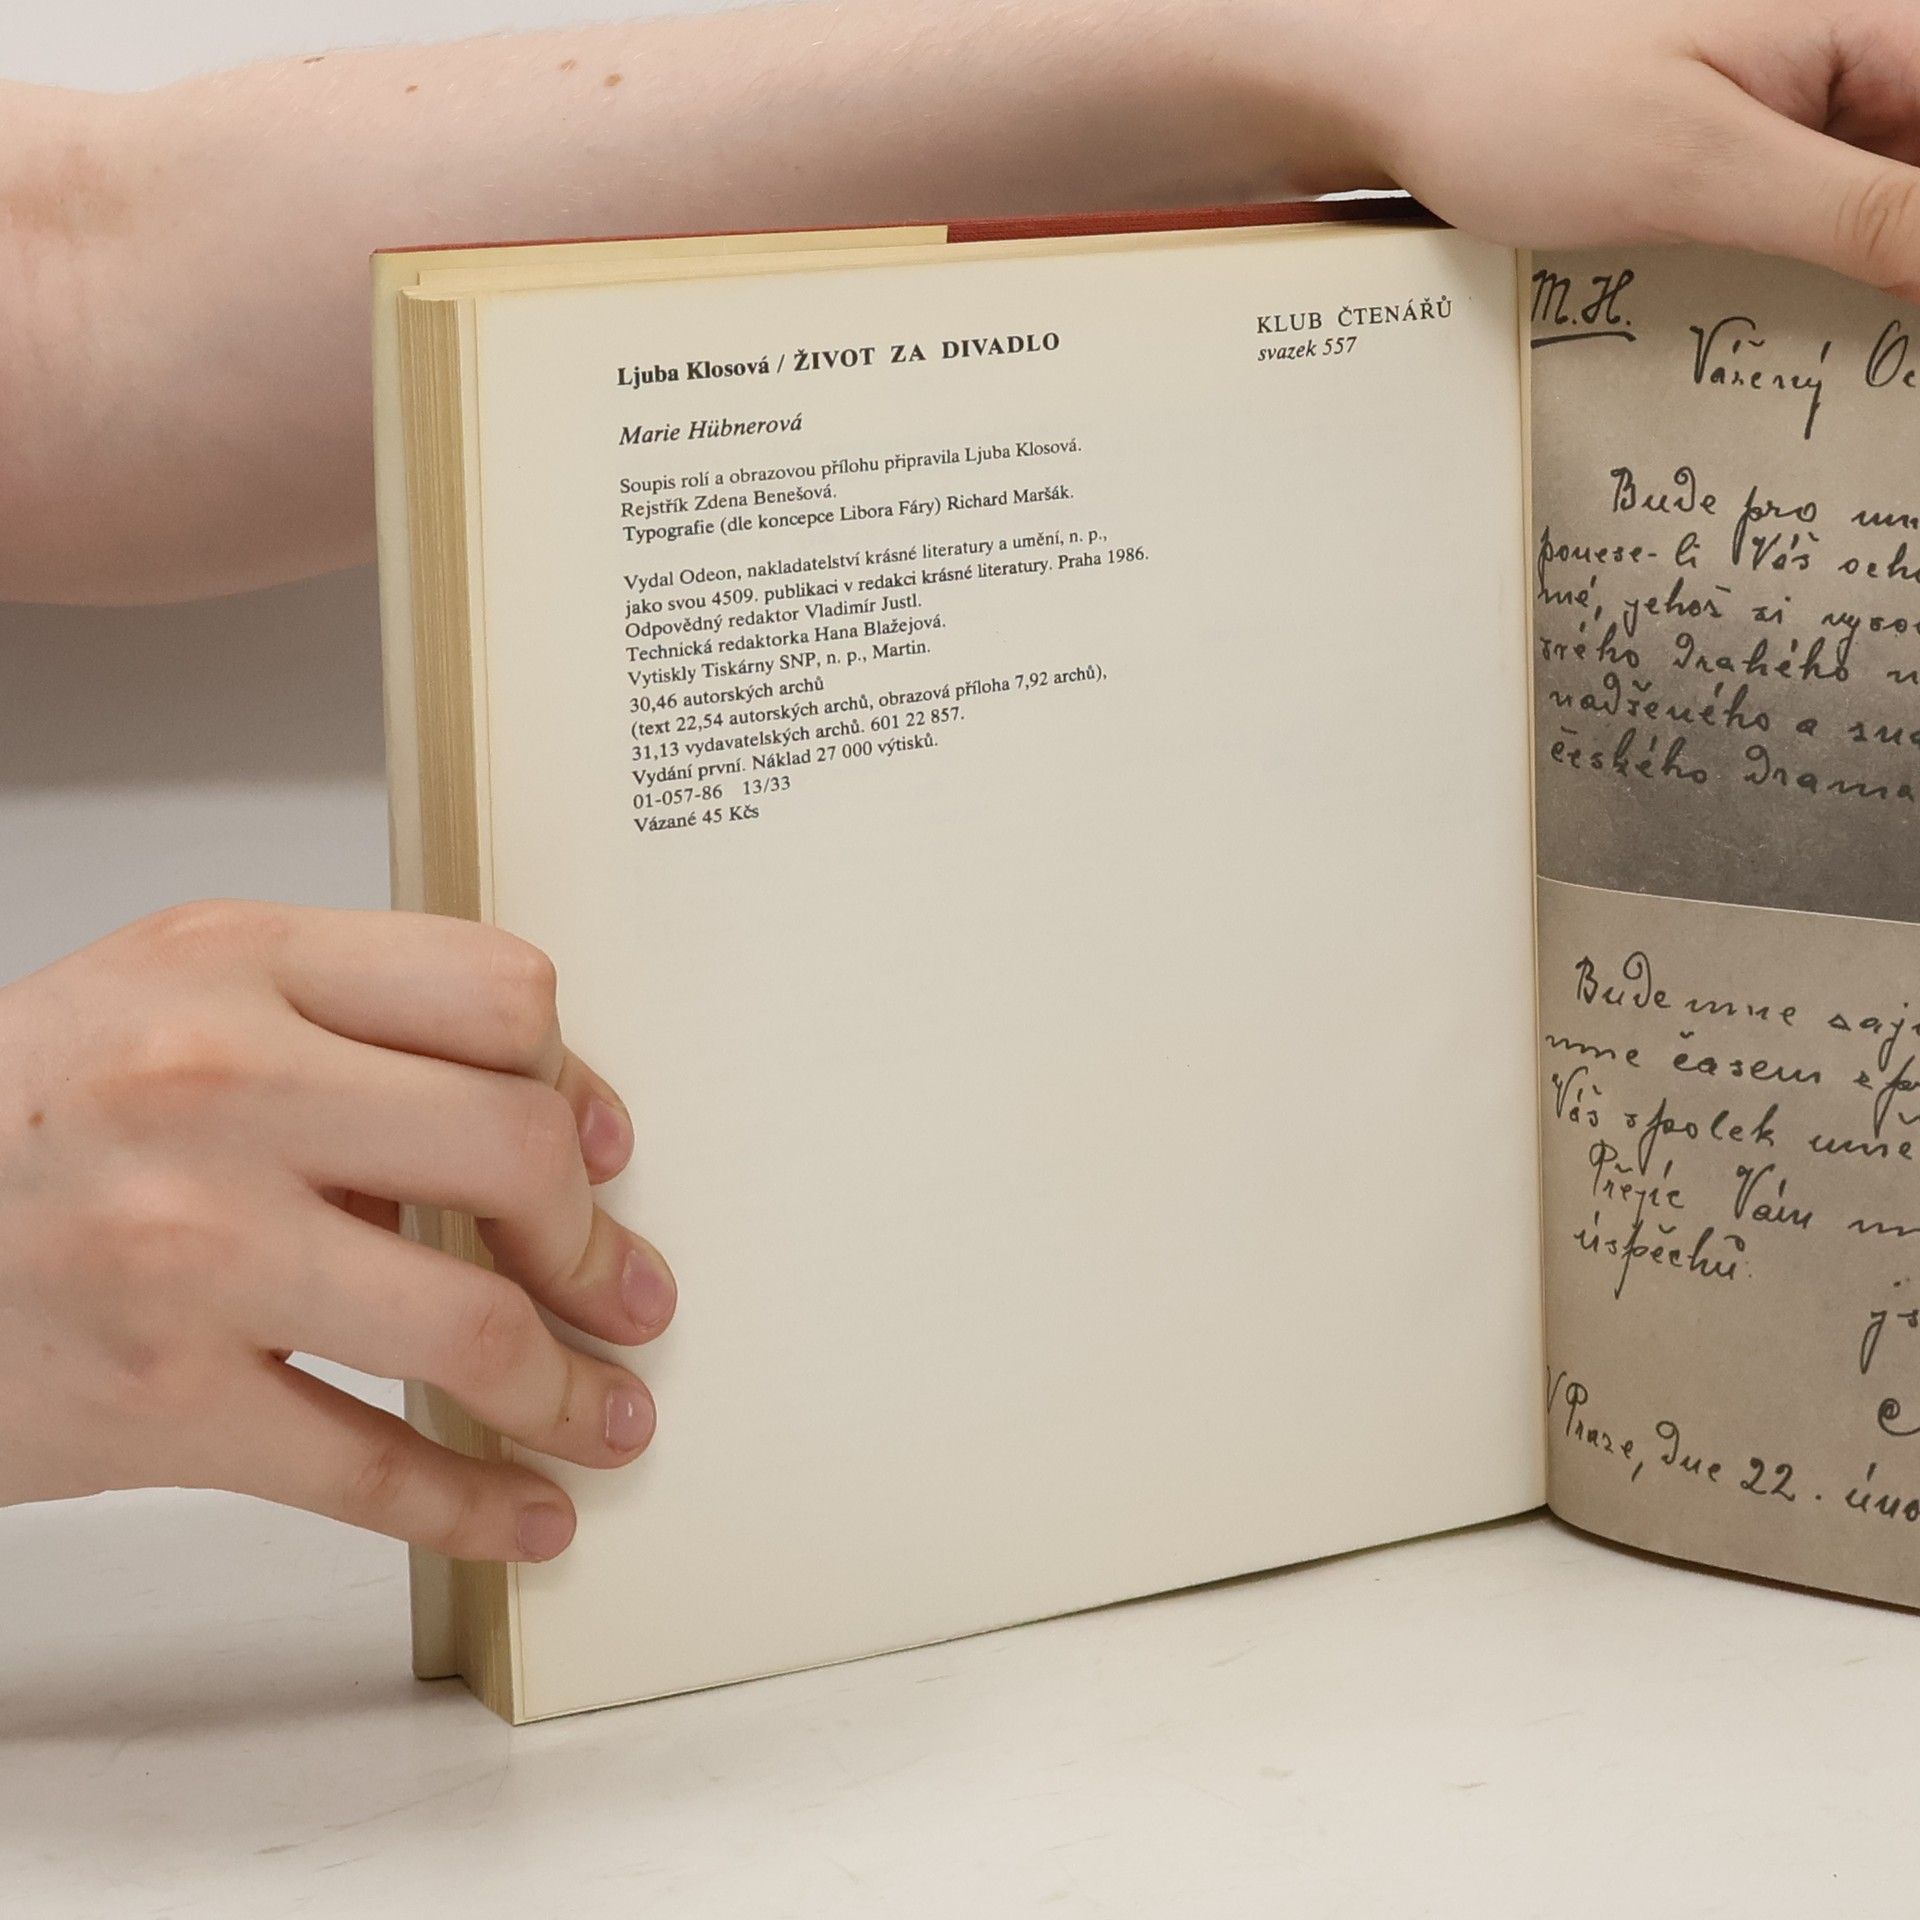 Ljuba Klosová / ŽIVOT ZA DIVADLO
KLUB ČTENÁŘŮ
svazek 557
Marie Hübnerová
Soupis rolí a obrazovou přílohu připravila Ljuba Klosová.
Rejstřík Zdena Benešová.
Typografie (dle koncepce Libora Fáry) Richard Maršák.
Vydal Odeon, nakladatelství krásné literatury a umění, n. p.,
jako svou 4509. publikaci v redakci krásné literatury. Praha 1986.
Odpovědný redaktor Vladimír Justl.
Technická redaktorka Hana Blažejová.
Vytiskly Tiskárny SNP, n. p., Martin.
30,46 autorských archů
(text 22,54 autorských archů, obrazová příloha 7,92 archů),
31,13 vydavatelských archů. 601 22 857.
Vydání první. Náklad 27 000 výtisků.
01-057-86 13/33
Vázané 45 Kčs
M.H.
Vážený
Bude pro
ponese-li Váš
mé, jehož si
svého drahého
nadšeného a
českého
Bude mne
mne časem
Váš spolek
Přejíc Vám
úspěchů
V Praze, dne 22.